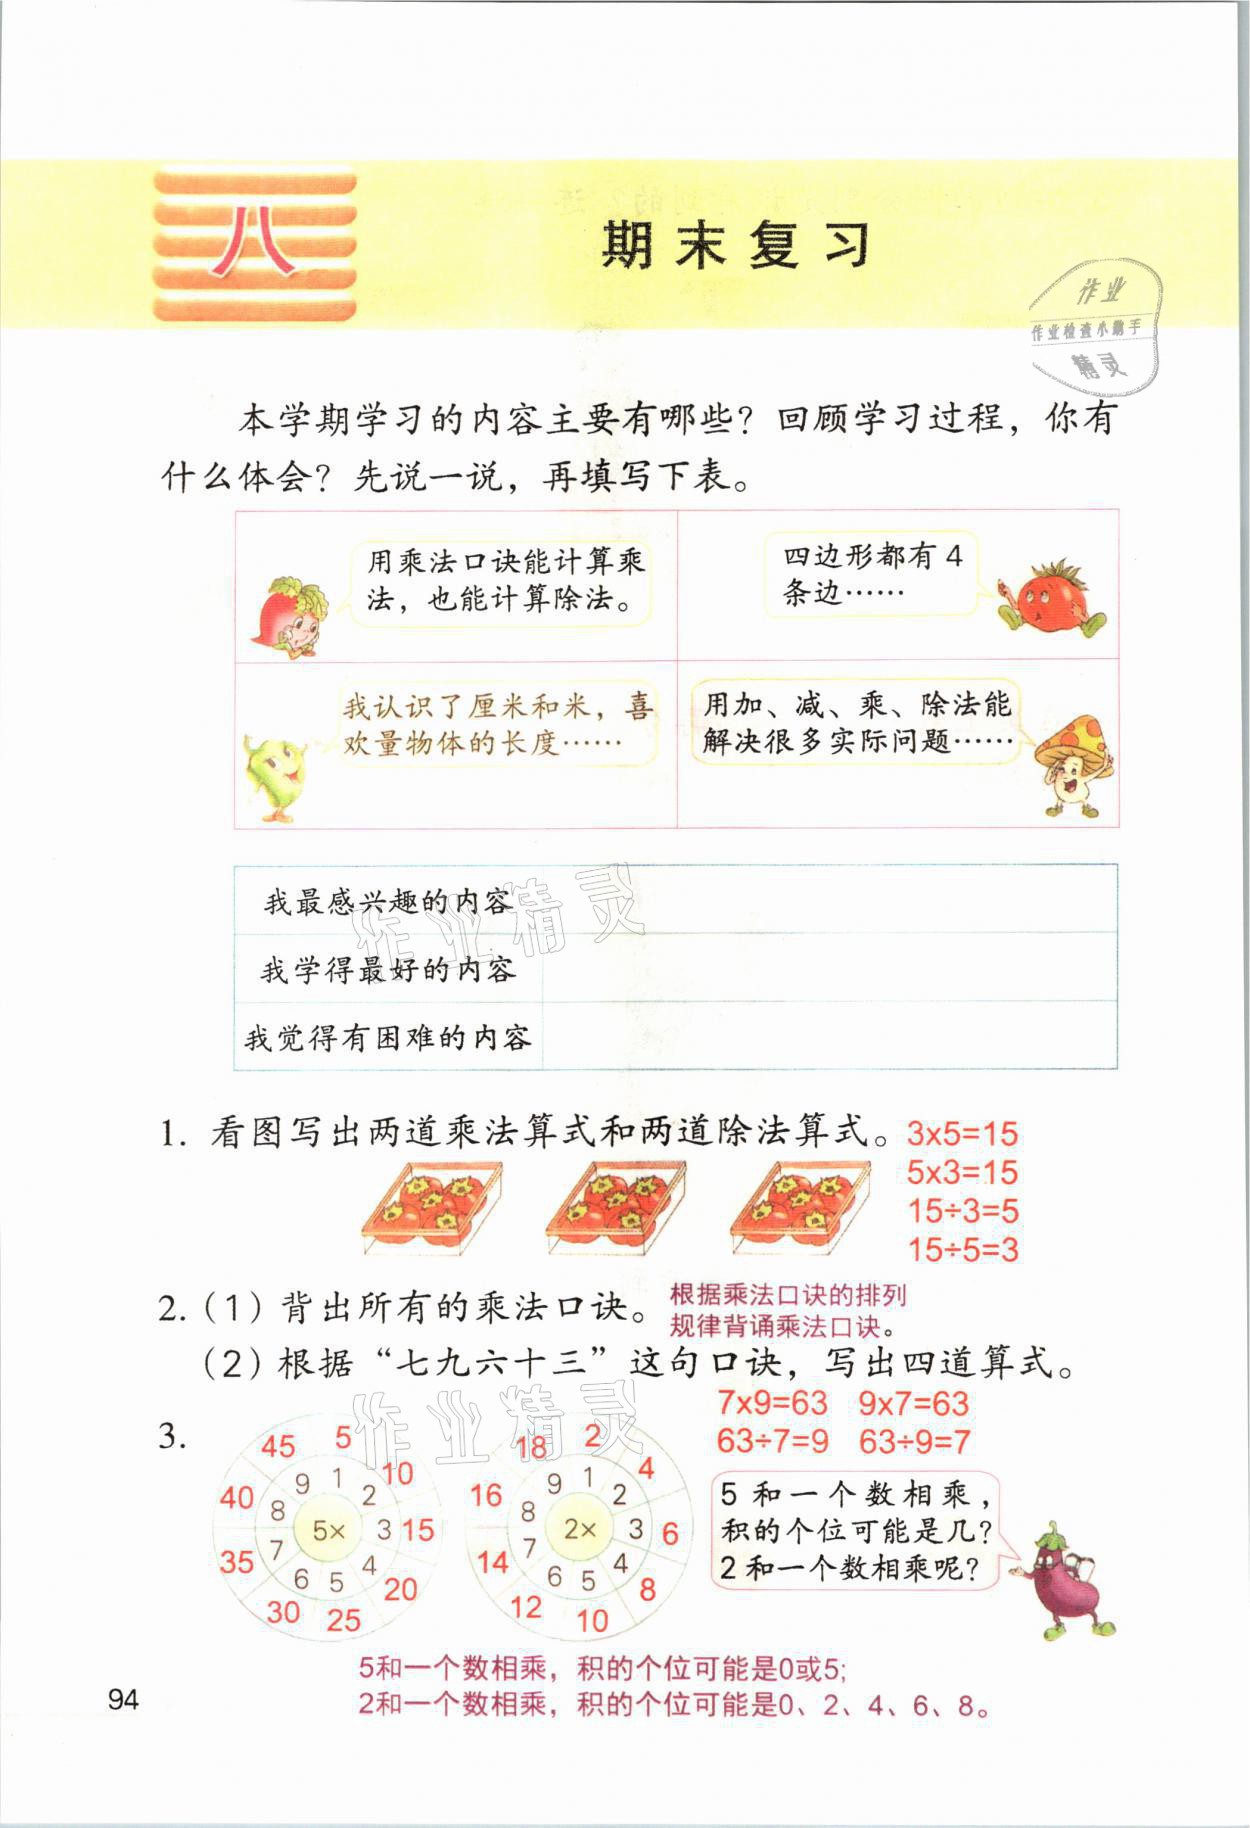 八
期末复习
作业
作业检查小助手
精灵
本学期学习的内容主要有哪些？回顾学习过程，你有
什么体会？先说一说，再填写下表。
用乘法口诀能计算乘
法，也能计算除法。
四边形都有 4
条边……
我认识了厘米和米，喜
欢量物体的长度……
用加、减、乘、除法能
解决很多实际问题……
作业精灵
我最感兴趣的内容
我学得最好的内容
我觉得有困难的内容
1. 看图写出两道乘法算式和两道除法算式。
3x5=15
5x3=15
15÷3=5
15÷5=3
2.（1）背出所有的乘法口诀。
根据乘法口诀的排列
规律背诵乘法口诀。
（2）根据“七九六十三”这句口诀，写出四道算式。
7x9=63 9x7=63
63÷7=9 63÷9=7
作业精灵
3.
5×
1 2 3 4 5 6 7 8 9
5 10 15 20 25 30 35 40 45
2×
1 2 3 4 5 6 7 8 9
2 4 6 8 10 12 14 16 18
5 和一个数相乘，
积的个位可能是几？
2 和一个数相乘呢？
5和一个数相乘，积的个位可能是0或5;
2和一个数相乘，积的个位可能是0、2、4、6、8。
94